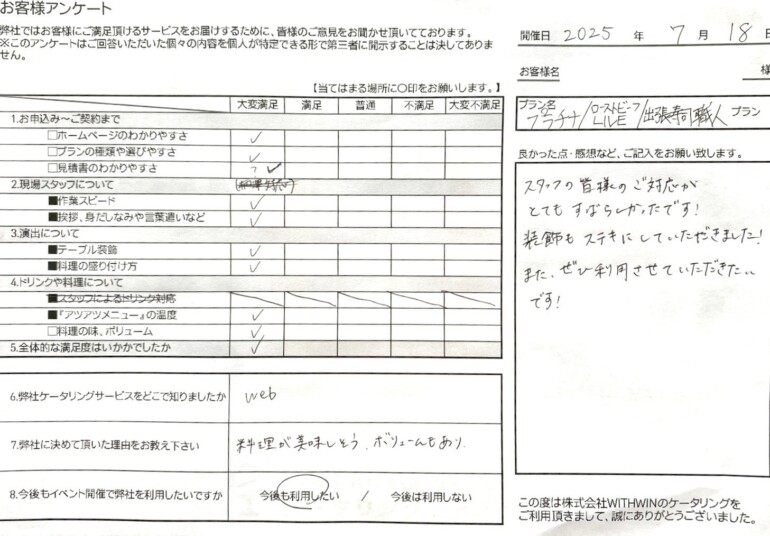 お客様アンケート
弊社ではお客様にご満足頂けるサービスをお届けするために、皆様のご意見をお聞かせ頂いてております。
※このアンケートはご回答いただいた個々の内容を個人が特定できる形で第三者に開示することは決してありま
せん。
【当てはまる場所に○印をお願いします。】
大変満足 満足 普通 不満足 大変不満足
1.お申込み~ご契約まで
□ホームページのわかりやすさ ✓
□プランの種類や選びやすさ ✓
□見積書のわかりやすさ ✓
2.現場スタッフについて
■作業スピード ✓
■挨拶、身だしなみや言葉遣いなど ✓
3.演出について
■テーブル装飾 ✓
■料理の盛り付け方 ✓
4.ドリンクや料理について
■スタッフによるドリンク対応
■『アツアツメニュー』の温度 ✓
□料理の味、ボリューム ✓
5.全体的な満足度はいかがでしたか ✓
6.弊社ケータリングサービスをどこで知りましたか web
7.弊社に決めて頂いた理由をお教え下さい 料理が美味しそう、ボリュームもあり
8.今後もイベント開催で弊社を利用したいですか 今後も利用したい / 今後は利用しない
開催日 2025 年 7 月 18 日
お客様名 様
プラン名
プラチナ/ローストビーフLIVE/出張寿司職人 プラン
良かった点・感想など、ご記入をお願い致します。
スタッフの皆様のご対応が
とてもすばらしかったです!
装飾もステキにしていただきました!
また、ぜひ利用させていただきたい
です!
この度は株式会社WITHWINのケータリングを
ご利用頂きまして、誠にありがとうございました。